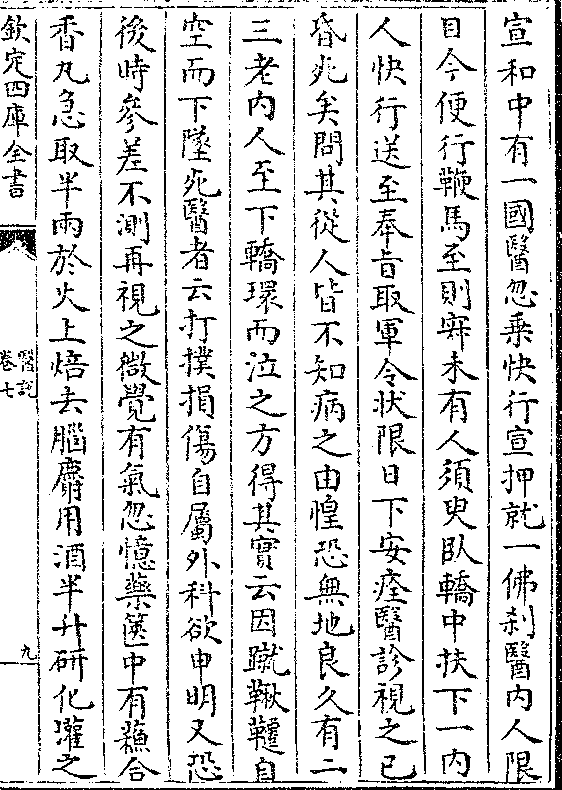 宣和中有一國醫忽乘快行宣押就一佛刹醫内人限
目今便行鞭馬至則寂未有人須臾卧轎中扶下一内
人快行送至奉旨取軍令状限日下安痊醫診視之已
昏死矣問其從人皆不知病之由惶恐無地良久有二
三老内人至下轎環而泣之方得其實云因蹴鞦韆自
空而下墜死醫者云打撲損傷自屬外科欲申明又恐
後時參差不測再視之微覺有氣忽憶藥篋中有蘓合
香丸急取半兩於火上焙去腦麝用酒半升研化灌之
欽定四庫全書
醫説
卷七
九